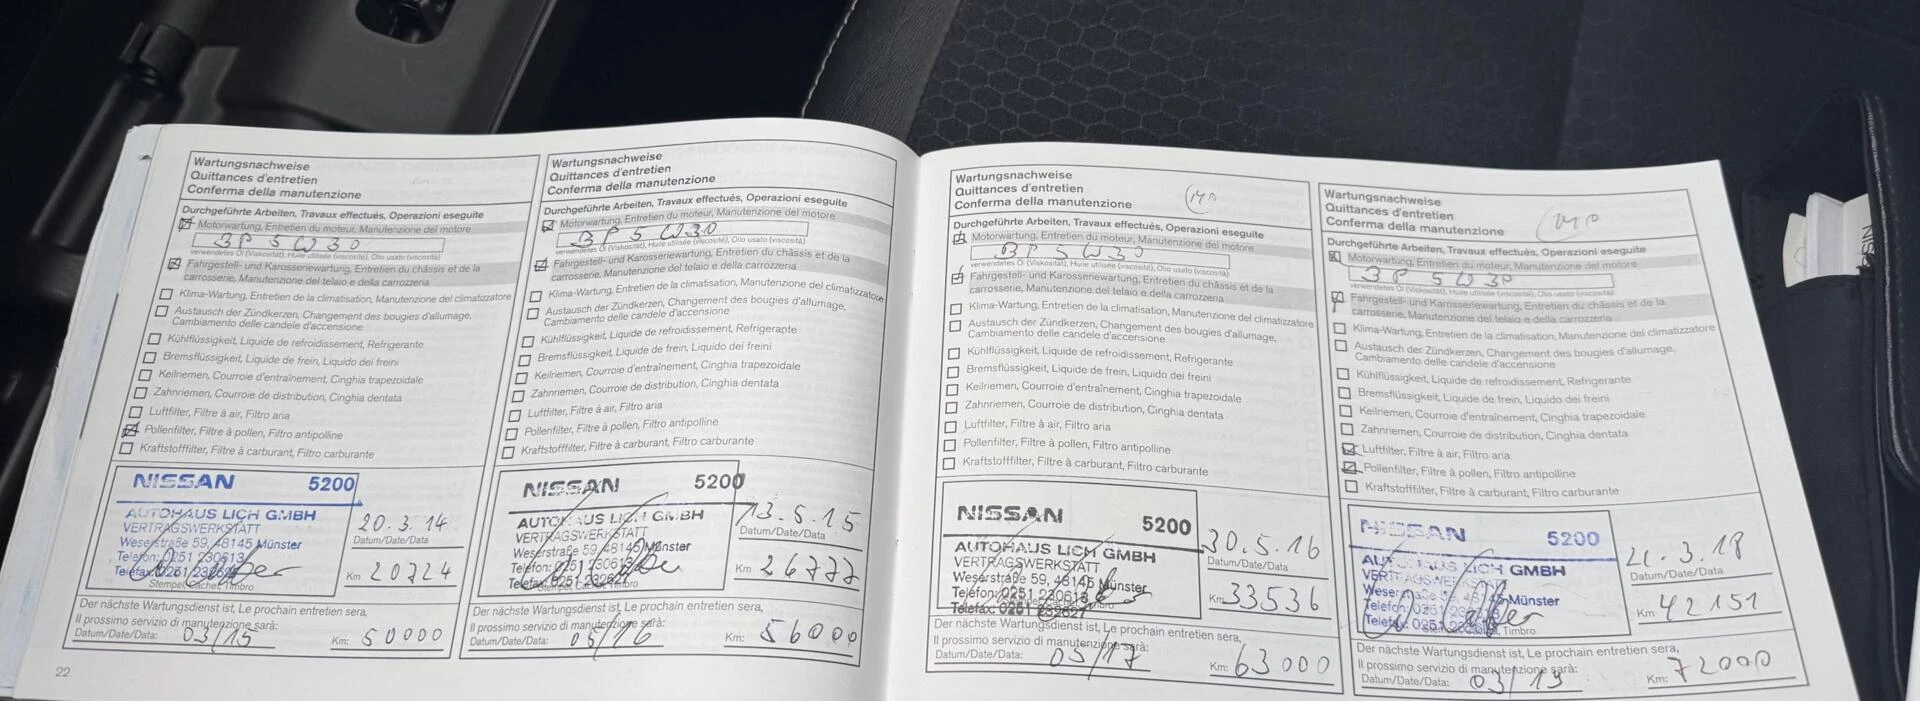 Wartungsnachweise
Quittances d'entretien
Conferma della manutenzione
Durchgeführte Arbeiten, Travaux effectués, Operazioni eseguite
Motorwartung, Entretien du moteur, Manutenzione del motore
BP 5 W 30
verwendetes Öl (Viskosität), Huile utilisée (viscosité), Olio usato (viscosità)
Fahrgestell- und Karosseriewartung, Entretien du châssis et de la
carrosserie, Manutenzione del telaio e della carrozzeria
Klima-Wartung, Entretien de la climatisation, Manutenzione del climatizzatore
Austausch der Zündkerzen, Changement des bougies d'allumage,
Cambiamento delle candele d'accensione
Kühlflüssigkeit, Liquide de refroidissement, Refrigerante
Bremsflüssigkeit, Liquide de frein, Liquido dei freini
Keilriemen, Courroie d'entraînement, Cinghia trapezoidale
Zahnriemen, Courroie de distribution, Cinghia dentata
Luftfilter, Filtre à air, Filtro aria
Pollenfilter, Filtre à pollen, Filtro antipolline
Kraftstofffilter, Filtre à carburant, Filtro carburante
NISSAN 5200
AUTOHAUS LICH GMBH
VERTRAGSWERKSTATT
Weserstraße 59, 48145 Münster
Telefon: 0251 230613
Telefax: 0251 232627
Stempel, Cachet, Timbro
20.3.14
Datum/Date/Data
Km 20724
Der nächste Wartungsdienst ist, Le prochain entretien sera,
Il prossimo servizio di manutenzione sarà:
Datum/Date/Data: 03/15 Km: 50000
22
Wartungsnachweise
Quittances d'entretien
Conferma della manutenzione
Durchgeführte Arbeiten, Travaux effectués, Operazioni eseguite
Motorwartung, Entretien du moteur, Manutenzione del motore
BP 5 W 30
verwendetes Öl (Viskosität), Huile utilisée (viscosité), Olio usato (viscosità)
Fahrgestell- und Karosseriewartung, Entretien du châssis et de la
carrosserie, Manutenzione del telaio e della carrozzeria
Klima-Wartung, Entretien de la climatisation, Manutenzione del climatizzatore
Austausch der Zündkerzen, Changement des bougies d'allumage,
Cambiamento delle candele d'accensione
Kühlflüssigkeit, Liquide de refroidissement, Refrigerante
Bremsflüssigkeit, Liquide de frein, Liquido dei freini
Keilriemen, Courroie d'entraînement, Cinghia trapezoidale
Zahnriemen, Courroie de distribution, Cinghia dentata
Luftfilter, Filtre à air, Filtro aria
Pollenfilter, Filtre à pollen, Filtro antipolline
Kraftstofffilter, Filtre à carburant, Filtro carburante
NISSAN 5200
AUTOHAUS LICH GMBH
VERTRAGSWERKSTATT
Weserstraße 59, 48145 Münster
Telefon: 0251 230613
Telefax: 0251 232627
Stempel, Cachet, Timbro
13.5.15
Datum/Date/Data
Km 26777
Der nächste Wartungsdienst ist, Le prochain entretien sera,
Il prossimo servizio di manutenzione sarà:
Datum/Date/Data: 05/16 Km: 56000
Wartungsnachweise
Quittances d'entretien
Conferma della manutenzione
Durchgeführte Arbeiten, Travaux effectués, Operazioni eseguite
Motorwartung, Entretien du moteur, Manutenzione del motore
BP 5 W 30
verwendetes Öl (Viskosität), Huile utilisée (viscosité), Olio usato (viscosità)
Fahrgestell- und Karosseriewartung, Entretien du châssis et de la
carrosserie, Manutenzione del telaio e della carrozzeria
Klima-Wartung, Entretien de la climatisation, Manutenzione del climatizzatore
Austausch der Zündkerzen, Changement des bougies d'allumage,
Cambiamento delle candele d'accensione
Kühlflüssigkeit, Liquide de refroidissement, Refrigerante
Bremsflüssigkeit, Liquide de frein, Liquido dei freini
Keilriemen, Courroie d'entraînement, Cinghia trapezoidale
Zahnriemen, Courroie de distribution, Cinghia dentata
Luftfilter, Filtre à air, Filtro aria
Pollenfilter, Filtre à pollen, Filtro antipolline
Kraftstofffilter, Filtre à carburant, Filtro carburante
NISSAN 5200
AUTOHAUS LICH GMBH
VERTRAGSWERKSTATT
Weserstraße 59, 48145 Münster
Telefon: 0251 230613
Telefax: 0251 232627
30.5.16
Datum/Date/Data
Km 33536
Der nächste Wartungsdienst ist, Le prochain entretien sera,
Il prossimo servizio di manutenzione sarà:
Datum/Date/Data: 05/17 Km: 63000
Wartungsnachweise
Quittances d'entretien
Conferma della manutenzione
Durchgeführte Arbeiten, Travaux effectués, Operazioni eseguite
Motorwartung, Entretien du moteur, Manutenzione del motore
BP 5 W 30
verwendetes Öl (Viskosität), Huile utilisée (viscosité), Olio usato (viscosità)
Fahrgestell- und Karosseriewartung, Entretien du châssis et de la
carrosserie, Manutenzione del telaio e della carrozzeria
Klima-Wartung, Entretien de la climatisation, Manutenzione del climatizzatore
Austausch der Zündkerzen, Changement des bougies d'allumage,
Cambiamento delle candele d'accensione
Kühlflüssigkeit, Liquide de refroidissement, Refrigerante
Bremsflüssigkeit, Liquide de frein, Liquido dei freini
Keilriemen, Courroie d'entraînement, Cinghia trapezoidale
Zahnriemen, Courroie de distribution, Cinghia dentata
Luftfilter, Filtre à air, Filtro aria
Pollenfilter, Filtre à pollen, Filtro antipolline
Kraftstofffilter, Filtre à carburant, Filtro carburante
NISSAN 5200
AUTOHAUS LICH GMBH
VERTRAGSWERKSTATT
Weserstraße 59, 48145 Münster
Telefon: 0251
Telefax: 0251
Stempel, Cachet, Timbro
21.3.18
Datum/Date/Data
Km 42151
Der nächste Wartungsdienst ist, Le prochain entretien sera,
Il prossimo servizio di manutenzione sarà:
Datum/Date/Data: 03/19 Km: 72000